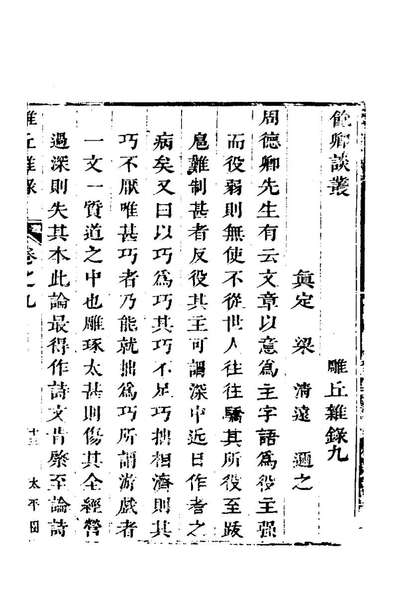 雕丘雜錄九
眞定 梁 清遠 邇之
飮卿談叢
周德卿先生有云文章以意爲主字語爲役主强
而役弱則無使不從世人往往驕其所役至跋
扈難制甚者反役其主可謂深中近日作者之
病矣又曰以巧爲巧其巧不足巧拙相濟則其
巧不厭唯甚巧者乃能就拙爲巧所謂游戲者
一文一質道之中也雕琢太甚則傷其全經營
過深則失其本此論最得作詩文昔縻至論詩
雕丘雜錄 卷之九 十三 太平園